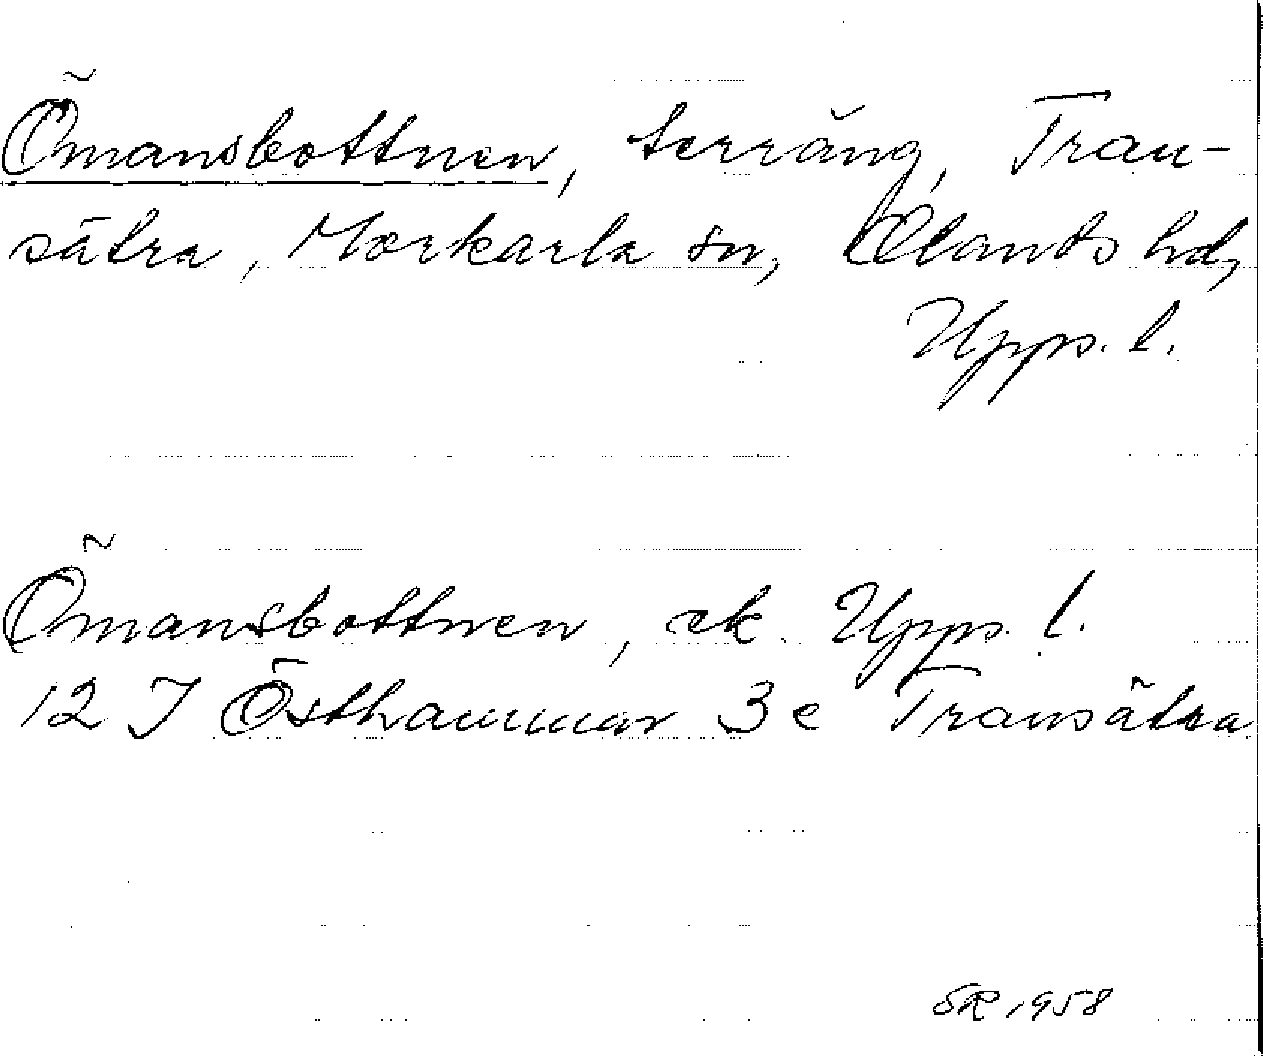 Ömansbottnen, terräng, Tran-
sätra, Morkarla sn, Olands hd,
Upps. l.
Ömansbottnen, ek. Upps. l.
12 I Östhammar 3 e Transätra
SR 1958